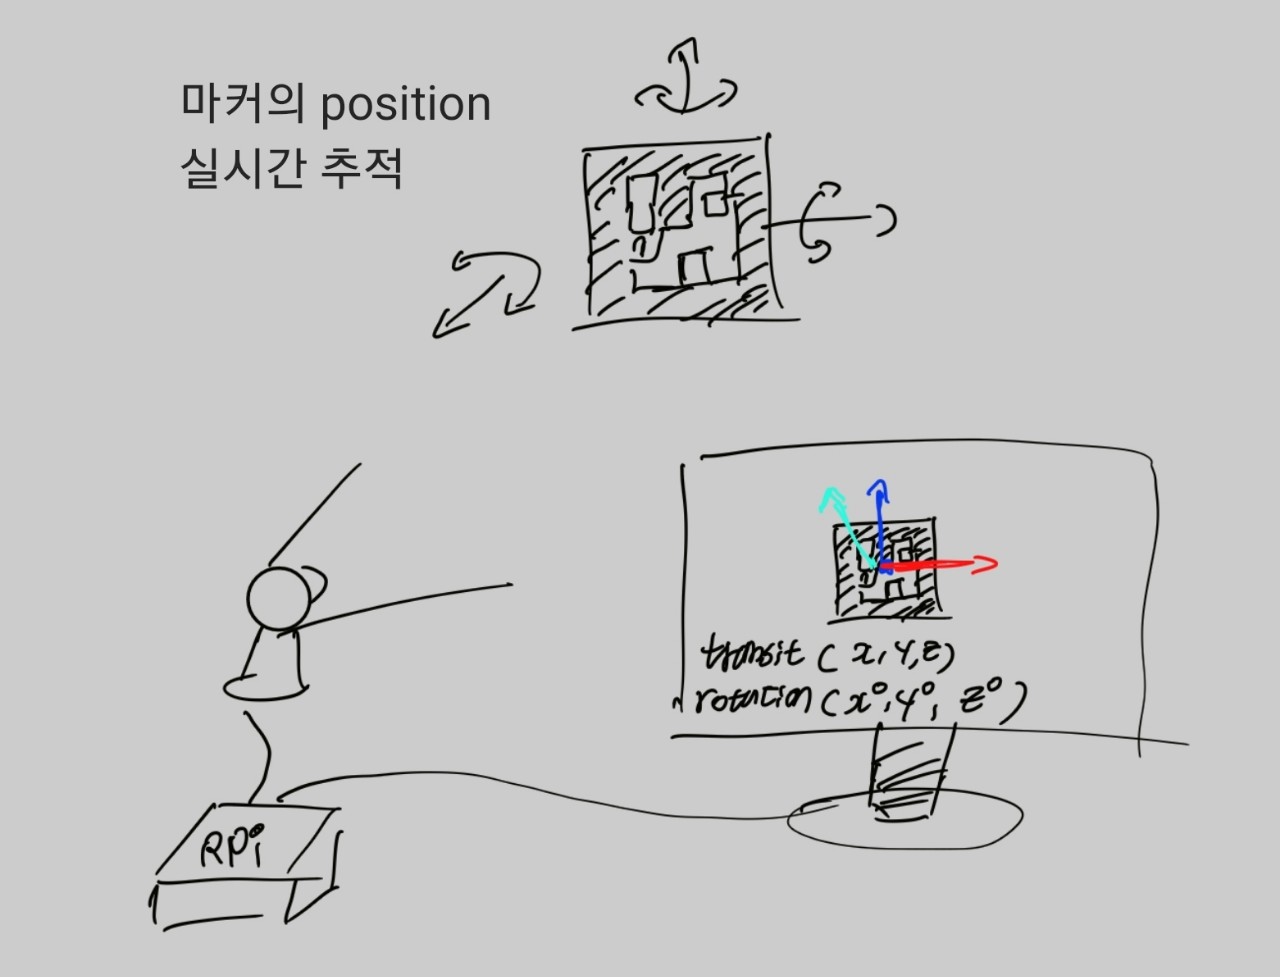 마커의 position
실시간 추적
transit (x, y, z)
rotation (x°, y°, z°)
RPi